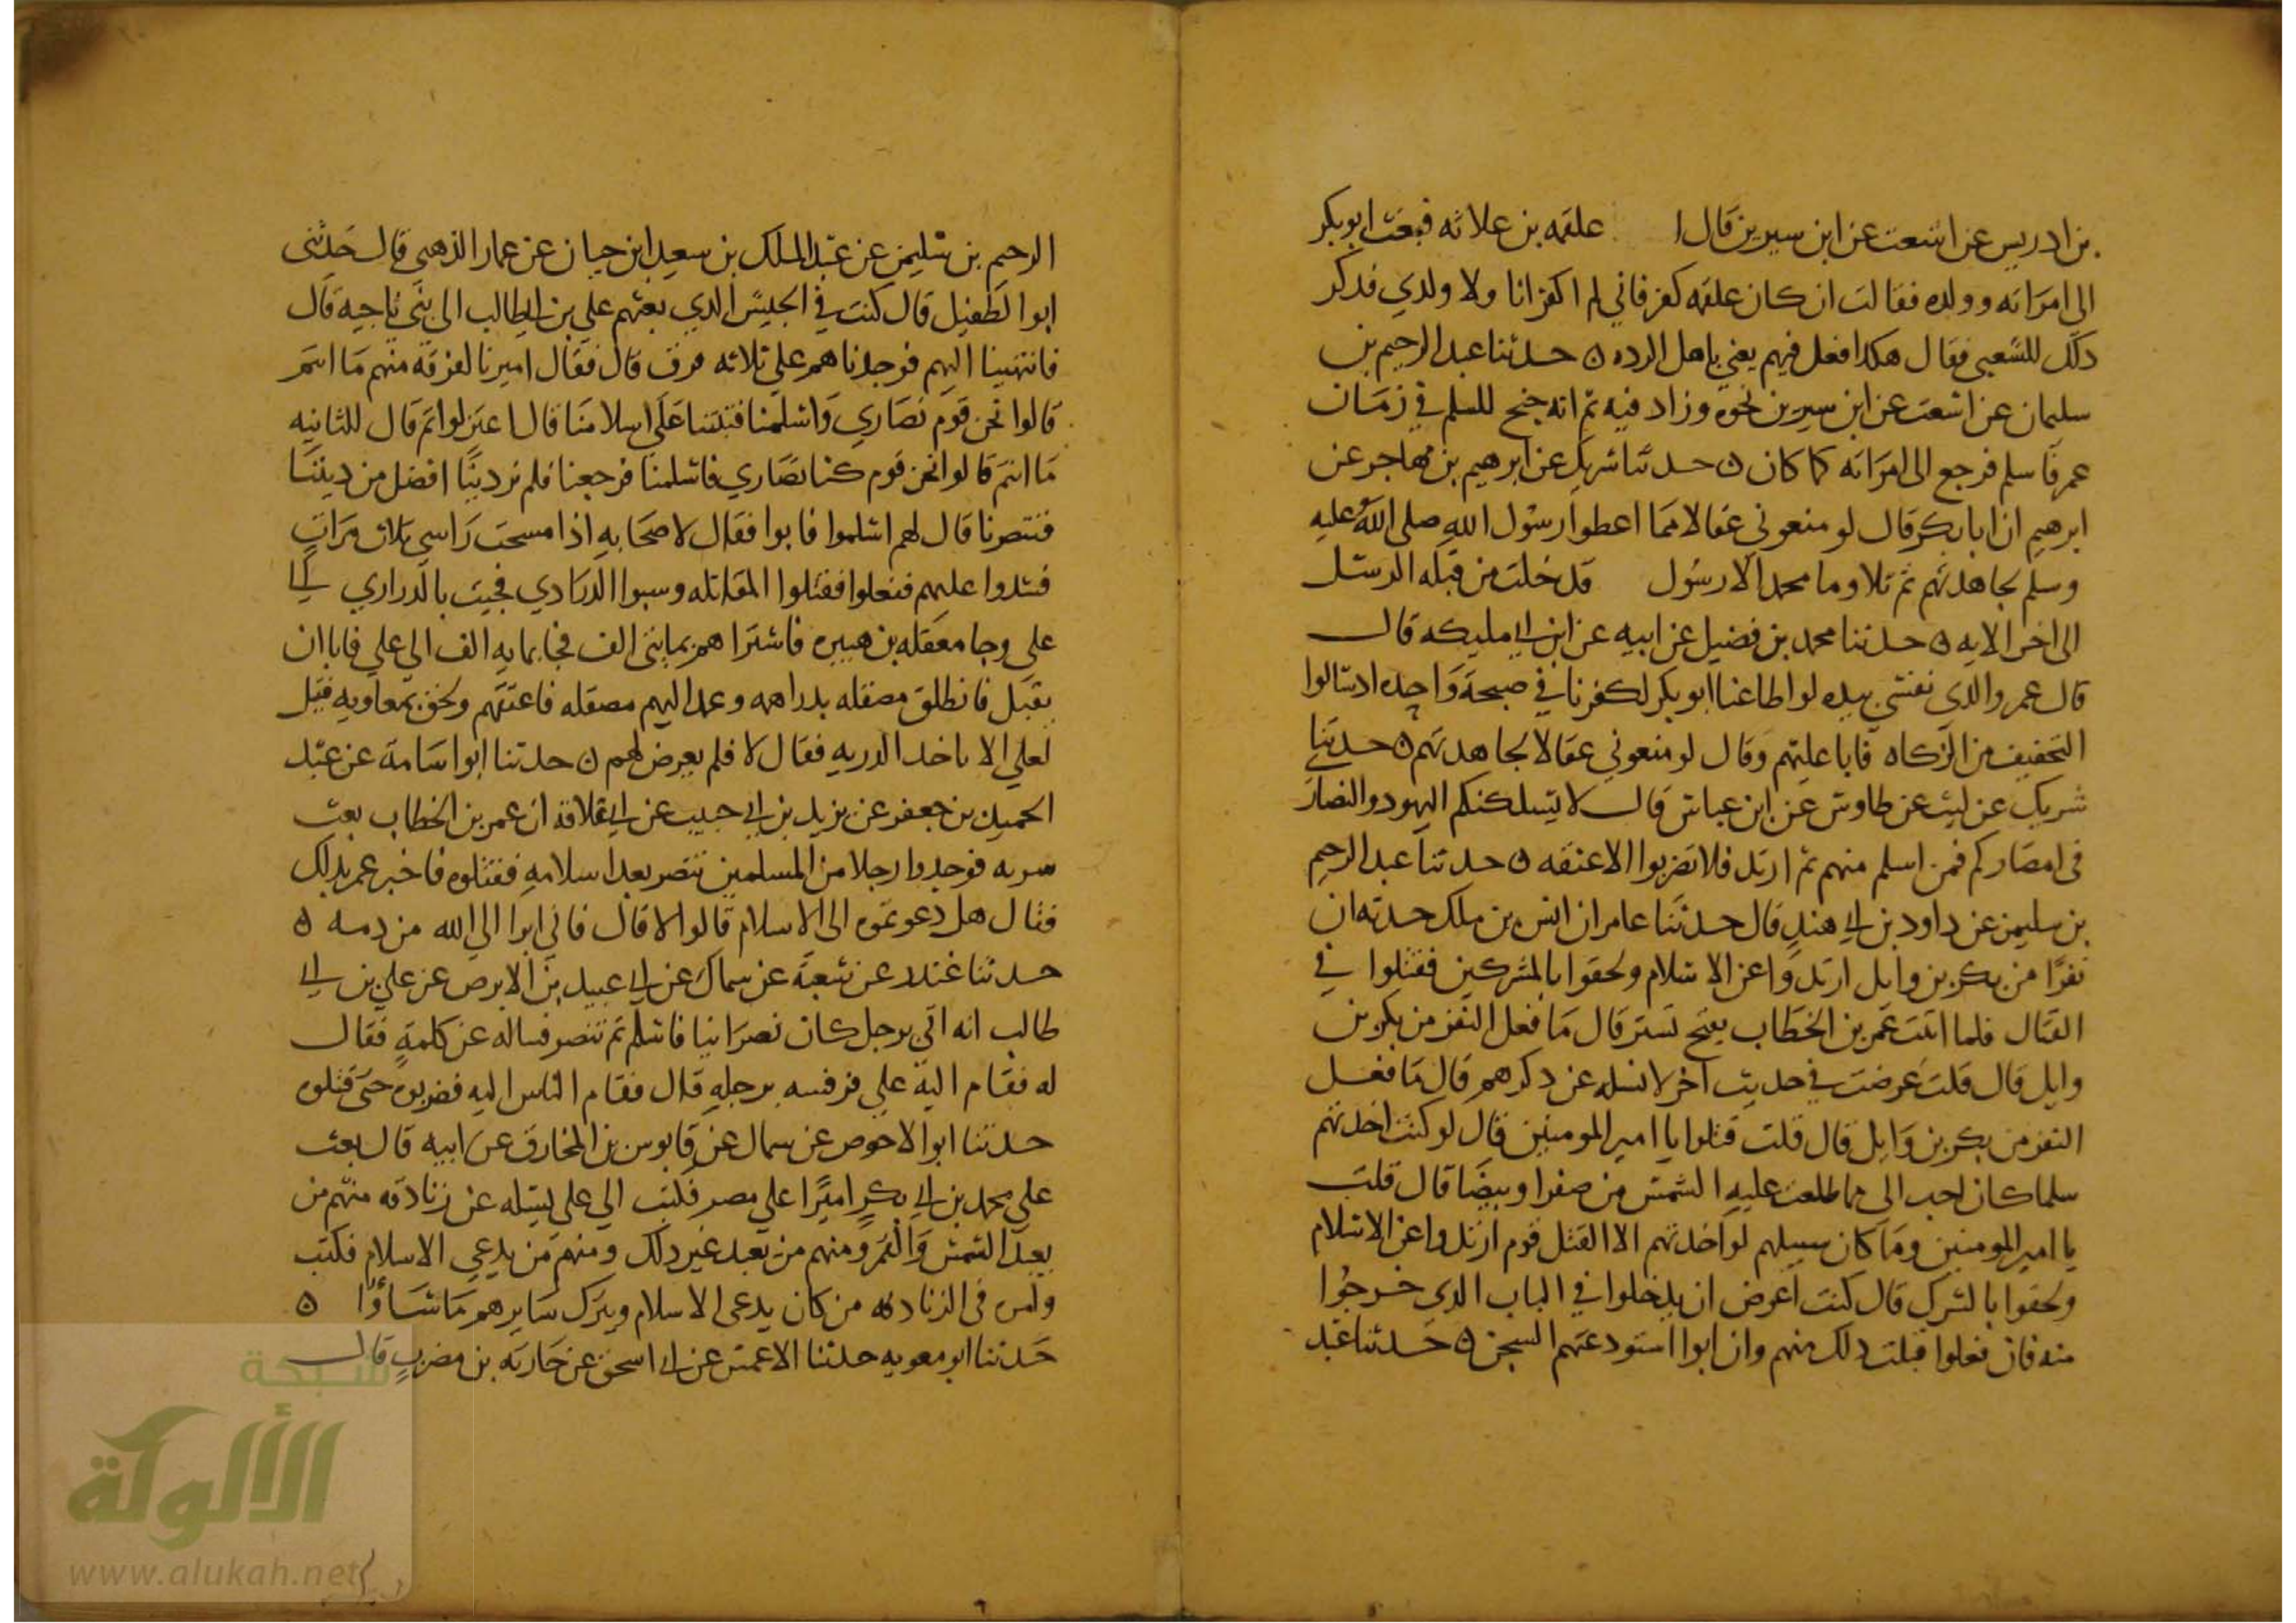 بن ادريس عن اشعث عن ابن سيرين قال ا علقمه بن علاثه فبعث ابو بكر
الى امراته وولده فقالت ان كان علقمه كفر فاني لم اكفر انا ولا ولدي فذكر
ذلك للشعبي فقال هكذا فعل فيهم يعني باهل الرده ٥ حدثنا عبد الرحيم بن
سليمان عن اشعث عن ابن سيرين نحوه وزاد فيه ثم انه جنح للسلم في زمان
عمر فاسلم فرجع الى امراته كما كان ٥ حدثنا شريك عن ابرهيم بن مهاجر عن
ابرهيم ان ابا بكر قال لو منعوني عقالا مما اعطوا رسول الله صلى الله عليه
وسلم لجاهدتهم ثم تلا وما محمد الا رسول قد خلت من قبله الرسل
الى اخر الايه ٥ حدثنا محمد بن فضيل عن ابيه عن ابن ابي مليكه قال
قال عمر والذي نفسي بيده لو اطاعنا ابو بكر لكفرنا في صبحة واحده اذ سالوا
التخفيف من الزكاه فابا عليهم وقال لو منعوني عقالا لجاهدتهم ٥ حدثنا
شريك عن ليث عن طاوس عن ابن عباس قال لا يساكنكم اليهود والنصار
في امصاركم فمن اسلم منهم ثم ارتد فلا تضربوا الا عنقه ٥ حدثنا عبد الرحيم
بن سليمن عن داود بن ابي هند قال حدثنا عامر ان انس بن ملك حدثه ان
نفرا من بكر بن وايل ارتدوا عن الاسلام ولحقوا بالمشركين فقتلوا في
القتال فلما اتيت عمر بن الخطاب بفتح تستر قال ما فعل النفر من بكر بن
وايل قال قلت عرضت في حديث اخر لاشغله عن ذكرهم قال ما فعل
النفر من بكر بن وايل قال قلت قتلوا يا امير المومنين قال لو كنت اخذتهم
سلما كان احب الي مما طلعت عليه الشمس من صفرا وبيضا قال قلت
يا امير المومنين وما كان سبيلهم لو اخذتهم الا القتل قوم ارتدوا عن الاسلام
ولحقوا بالشرك قال كنت اعرض ان يدخلوا في الباب الذي خرجوا
منه فان فعلوا قبلت ذلك منهم وان ابوا استودعتهم السجن ٥ حدثنا عبد
الرحيم بن سليمن عن عبد الملك بن سعيد ابن حيان عن عمار الذهبي قال حدثني
ابوا لطفيل قال كنت في الجيش الذي بعثهم علي بن ابي طالب الى بني ناجيه قال
فانتهينا اليهم فوجدناهم على ثلاثه فرق قال فقال اميرنا لفرقه منهم ما انتم
قالوا نحن قوم نصاري واسلمنا فثبتنا على اسلامنا قال اعتزلوا ثم قال للثانيه
ما انتم قالوا نحن قوم كنا نصاري فاسلمنا فرجعنا فلم نر دينا افضل من ديننا
فتنصرنا قال لهم اسلموا فابوا فقال لاصحابه اذا مسحت راسي ثلاث مرات
فشدوا عليهم ففعلوا فقتلوا المقاتله وسبوا الذراري فجيت بالذراري الى
علي وجا معقله بن هبيره فاشتراهم بمايتي الف فجا بمايه الف الي علي فابا ان
يقبل فانطلق مصقله بدراهمه وعمد اليهم مصقله فاعتقهم ولحق بمعاويه فقيل
لعلي الا ناخذ الذريه فقال لا فلم يعرض لهم ٥ حدثنا ابوا سامة عن عبد
الحميد بن جعفر عن يزيد بن ابي حبيب عن ابي علاقه ان عمر بن الخطاب بعث
سريه فوجدوا رجلا من المسلمين تنصر بعد اسلامه فقتلوه فاخبر عمر بذلك
فقال هل دعوتموه الى الاسلام قالوا لا قال فاني ابرا الى الله من دمه ٥
حدثنا غندر عن شعبة عن سماك عن ابي عبيد بن الابرص عن علي بن ابي
طالب انه اتي برجل كان نصرانيا فاسلم ثم تنصر فساله عن كلمة فقال
له فقام اليه علي فرفسه برجله قال فقام الناس اليه فضربوه حتى قتلوه
حدثنا ابوا لاحوص عن سمال عن قابوس بن المخارق عن ابيه قال بعث
علي محمد بن ابي بكر اميرا على مصر فكتب الي علي يسله عن زنادقه منهم من
يعبد الشمس والقمر ومنهم من يعبد غير ذلك ومنهم من يدعي الاسلام فكتب
وامر في الزنادقه من كان يدعي الاسلام ويترك سايرهم ما شاؤا ٥
حدثنا ابو معويه حدثنا الاعمش عن ابي اسحق عن حارثه بن مضرب قال
شبكة
الألوكة
www.alukah.net